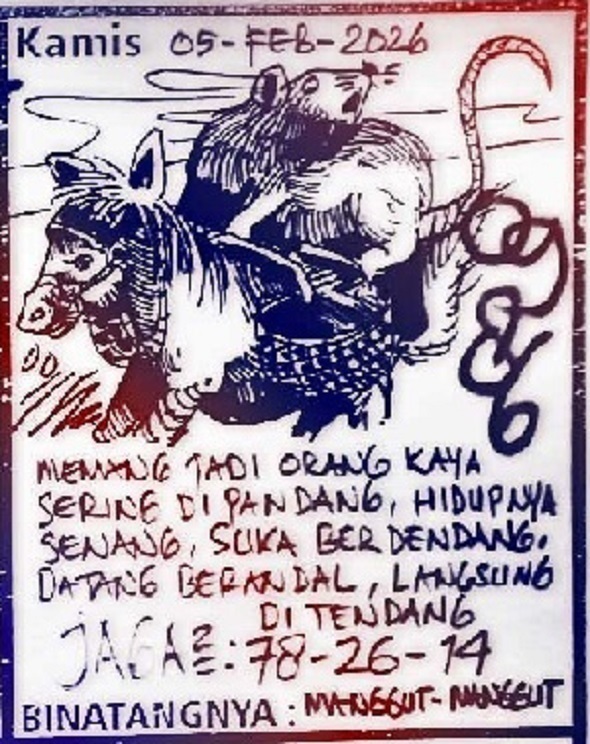 Kamis 05-FEB-2026
MEMANG JADI ORANG KAYA
SERING DIPANDANG, HIDUPNYA
SENANG, SUKA BERDENDANG.
DATANG BERANDAL, LANGSUNG
DI TENDANG
JAGA2=: 78-26-14
BINATANGNYA : MANGGUT-MANGGUT